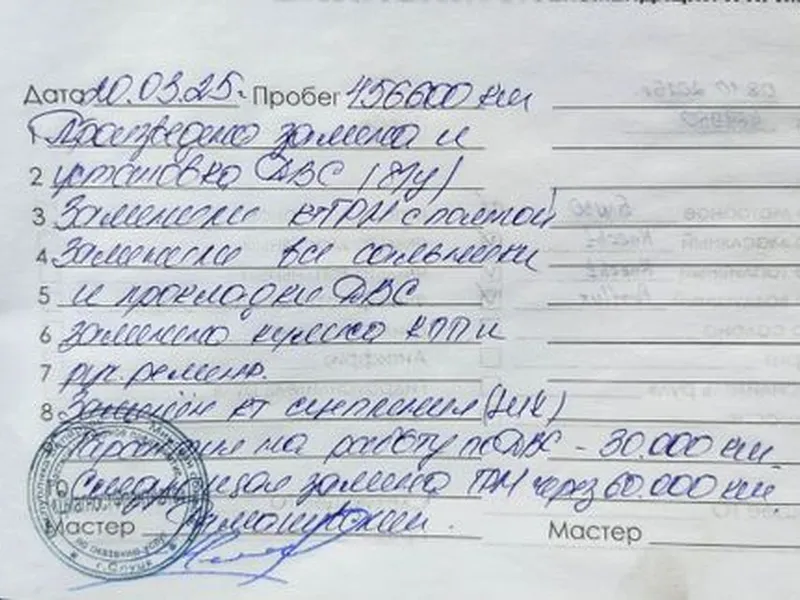 Дата 20.03.25г. Пробег 456600 км
1 Произведено замена и
2 установка ДВС (б/у)
3 Заменено к-т ГРМ с помпой
4 Заменено все сальники
5 и прокладки ДВС
6 заменено кулиса КПП и
7 руч. ремень.
8 Заменён кт сцепления (
Гарантия на работу по ДВС - 30.000 км.
Следующая замена ГРМ через 60.000 км
Мастер
Мастер
г. Слуцк